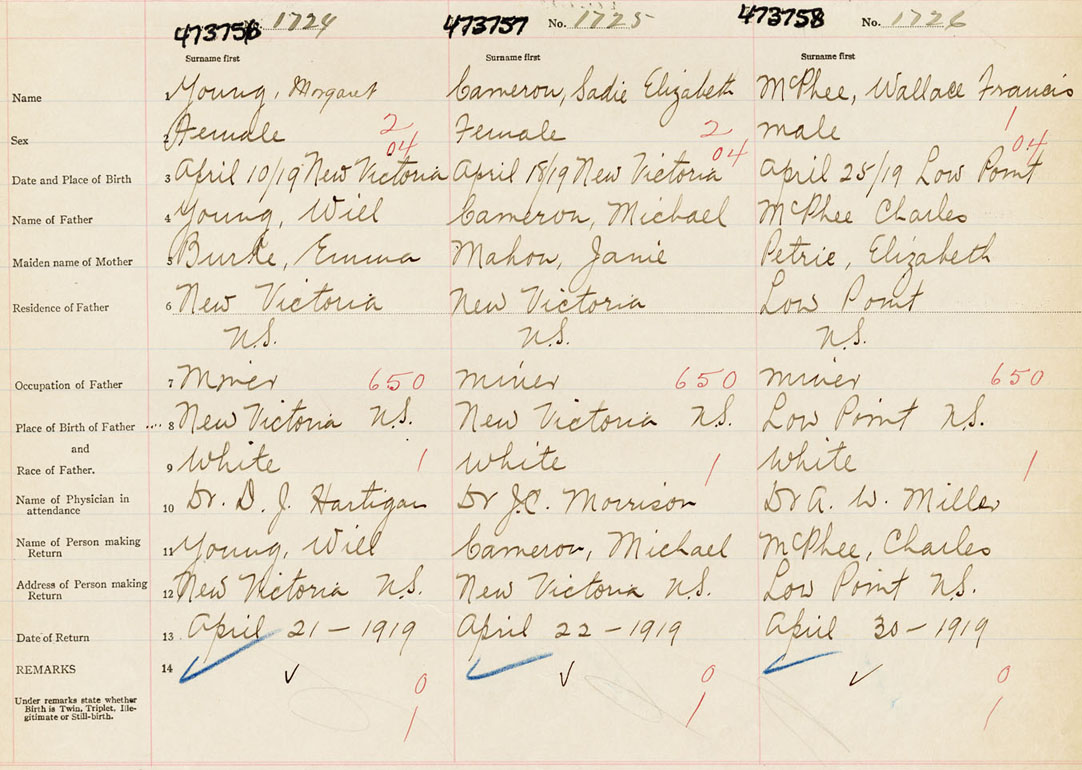 473756 No. 1724 473757 No. 1725 473758 No. 1726
Surname first Surname first Surname first
Name 1 Young, Margaret Cameron, Sadie Elizabeth McPhee, Wallace Francis
Sex 2 Female 2 Female 2 male 1
04 04 04
Date and Place of Birth 3 April 10/19 New Victoria April 18/19 New Victoria April 25/19 Low Point
Name of Father 4 Young, Will Cameron, Michael McPhee Charles
Maiden name of Mother 5 Burke, Emma Mahon, Janie Petrie, Elizabeth
Residence of Father 6 New Victoria New Victoria Low Point
N.S. N.S. N.S.
Occupation of Father 7 Miner 650 miner 650 miner 650
Place of Birth of Father 8 New Victoria N.S. New Victoria N.S. Low Point N.S.
and
Race of Father. 9 White 1 White 1 White 1
Name of Physician in
attendance 10 Dr. D. J. Hartigan Dr J.C. Morrison Dr A. W. Miller
Name of Person making
Return 11 Young, Will Cameron, Michael McPhee, Charles
Address of Person making
Return 12 New Victoria N.S. New Victoria N.S. Low Point N.S.
Date of Return 13 April 21 - 1919 April 22 - 1919 April 30 - 1919
REMARKS 14 ✓ ✓ 0 ✓ ✓ 0 ✓ ✓ 0
Under remarks state whether
Birth is Twin, Triplet, Ille-
gitimate or Still-birth. 1 1 1